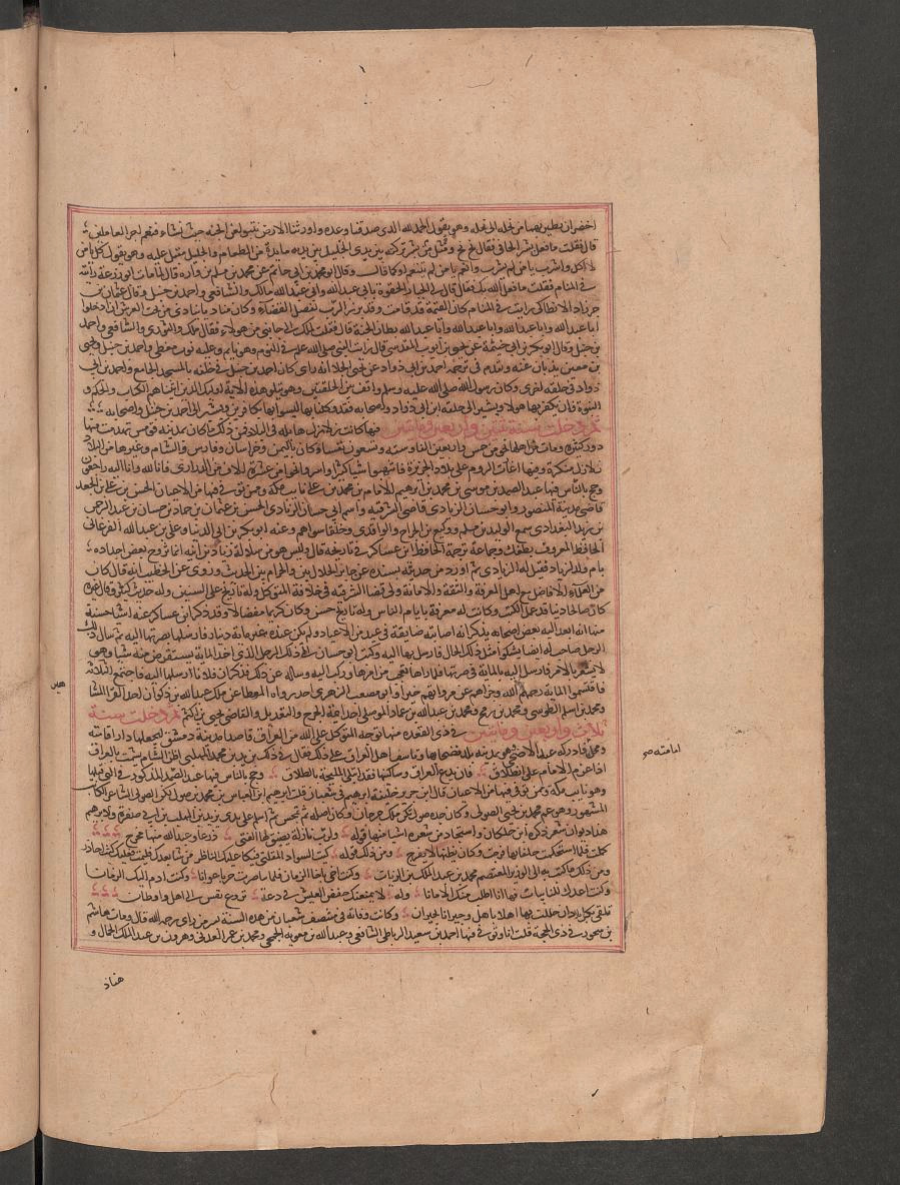 اخضران يطير بهما من نخلة الى نخلة وهو يقول الحمد لله الذى صدقنا وعده واورثنا الارض نتبوأ من الجنة حيث نشاء فنعم اجر العاملين
قال فقلت ما فعل بشر الحافى فقال بخ بخ ومن مثل بشر تركته بين يدى الجليل وبين يديه مائدة من الطعام والجليل مقبل عليه وهو يقول كل يا من
لم ياكل واشرب يا من لم يشرب وانعم يا من لم ينعم او كما قال وقال ابو محمد بن ابى حاتم عن محمد بن مسلم بن وارة قال لما مات ابو زرعة رأيته
فى المنام فقلت ما فعل الله بك فقال قال لى الجبار الحقوه بابى عبد الله وابى عبد الله وابى عبد الله مالك والشافعى واحمد بن حنبل وقال عثمان بن
خرزاد الانطاكى رايت فى المنام كان القيمة قد قامت وقد برز الرب لفصل القضاء وكان مناديا ينادى من تحت العرش ان ادخلوا
ابا عبد الله وابا عبد الله وابا عبد الله وابا عبد الله الجنة قال فقلت لملك الى جانبى من هولاء فقال مالك والثورى والشافعى واحمد
بن حنبل وقال ابو بكر بن ابى خيثمة عن يحيى بن ايوب المقدسى قال رايت النبى صلى الله عليه فى النوم وهو نايم وعليه ثوب مغطى واحمد بن حنبل ويحيى
بن معين يذبان عنه وتقدم فى ترجمة احمد بن ابى دواد عن يحيى الجلا انه راى كان احمد بن حنبل فى حلقة بالمسجد الجامع واحمد بن ابى
دواد فى حلقة اخرى وكان رسول الله صلى الله عليه وسلم واقف بين الحلقتين وهو يتلو هذه الاية اوليك الذين اتيناهم الكتاب والحكم و
النبوة فان يكفر بها هولا ويشير الى حلقة ابن ابى دواد واصحابه فقد وكلنا بها قوما ليسوا بها بكافرين ويشير الى احمد بن حنبل واصحابه
ثم دخلت سنة ثنتين واربعين ومائتين فيها كانت زلازل هايلة فى البلاد فمن ذلك ما كان بمدينة قومس تهدمت منها
دور كثيرة ومات من اهلها نحو من خمس واربعين الفا وستة وتسعون نفسا وكان باليمن وخراسان وفارس والشام وغيرها من البلاد
زلازل منكرة وفيها اغارت الروم على بلاد الجزيرة فانتهبوا شيا كثيرا واسروا نحوا من عشرة الاف من الذرارى فانا لله وانا اليه راجعون
وحج بالناس فيها عبد الصمد بن موسى بن محمد بن ابرهيم الامام بن محمد بن على نايب مكة ومن توفى فيها من الاعيان الحسن بن على بن الجعد
قاضى مدينة المنصور وابو حسان الزيادى قاضى الشرقية واسم ابى حسان الزيادى الحسن بن عثمان بن حماد بن حسان بن عبد الرحمن
بن يزيد البغدادى سمع الوليد بن مسلم ووكيع بن الجراح والواقدى وخلقا سواهم وعنه ابو بكر بن ابى الدنيا وعلى بن عبد الله الفرغانى
الحافظ المعروف بطفك وجماعة ترجمه الحافظ ابن عساكر فى تاريخه قال وليس هو من سلالة زياد بن ابيه انما تزوج بعض اجداده
بام ولد لزياد فقيل له الزيادى ثم اورد من حديثه بسنده عن جابر الحلال بين والحرام بين الحديث وروى عن الخطيب انه قال كان
من العلماء الافاضل من اهل المعرفة والثقة والامانة ولى قضا الشرقية فى خلافة المتوكل وله تاريخ على السنين وله حديث كثير وقال غيره
كان صالحا دينا قد عمل الكتب وكانت له معرفة بايام الناس وله تاريخ حسن وكان كريما مفضالا وقد ذكر ابن عساكر عنه اشيا حسنة
منها انه انفذ اليه بعض اصحابه يذكر انه اصابته ضايقة فى عيد من الاعياد ولم يكن عنده غير مائة دينار فارسلها بصرتها اليه ثم سال ذلك
الرجل صاحب له ايضا يشكو مثل ذلك الحال فارسل بها اليه وكتب ابو حسان الى ذلك الرجل الذى اخذ الماية يستقرض منه شيا وهو
لا يشعر بالامر فارسل اليه بالماية فى صرتها فلما راها تعجب من امرها وركب اليه وساله عن ذلك فذكر ان فلانا ارسلها اليه فاجتمع الثلاثة
فاقتسموا الماية رحمهم الله وجزاهم عن مروانهم خيرا وابو مصعب الزهرى احد رواة الموطا عن مالك عبد الله بن ذكوان احد القرا المشا
ومحمد بن اسلم الطوسى ومحمد بن رمح ومحمد بن عبد الله بن عمار الموصلى احد ائمة الجرح والتعديل والقاضى يحيى بن اكثم ثم دخلت سنة
ثلاث واربعين ومائتين فى ذى القعدة منها توجه المتوكل على الله من العراق قاصدا مدينة دمشق ليجعلها دار اقامته
ومحلة فادركه عيد الاضحى وهو بمدينة بلد فضحى بها وتاسف اهل العراق على ذلك فقال فى ذلك يزيد بن محمد المهلبى اظن الشام يشمت بالعراق
اذا عزم الامام على انطلاق فان يدع العراق وساكنيها فقد تبلى المليحة بالطلاق وحج بالناس فيها عبد الصمد المذكور فى التى قبلها
وهو نايب مكة وممن توفى فيها من الاعيان قال ابن جرير خليفة ابرهيم فى شعبان قلت ابرهيم ابن العباس بن محمد بن صول بكر الصولى الشاعر الكاتب
المشهور وهو عم محمد بن يحيى الصولى وكان جده صول بكر ملك جرجان وكان اصله منها ثم تمجس ثم اسلم على يدى يزيد بن المهلب بن ابى صفرة ولابرهيم
هذا ديوان شعر ذكره ابن خلكان واستجاد من شعره اشيا منها قوله ولرب نازلة يضيق لها الفتى ذرعا وعند الله منها مخرج
كملت فلما استحكمت حلقاتها فرجت وكان يظنها لا تفرج ومن ذلك قوله كنت السواد لمقلتى فبكا عليك الناظر من شا بعدك فليمت فعليك كنت احاذر
ومن ذلك ما كتب به الى الوزير المعتصم محمد بن عبد الملك بن الزيات وكنت اخى باخا الزمان فلما نبا صرت حربا عوانا وكنت اذم اليك الزمانا
وكنت اعدك للنائبات فها انا اطلب منك الامانا وله لا يمنعنك خفض العيش فى دعة نزوع نفس الى اهل واوطان
تلقى بكل بلاد ان حللت بها اهلا باهل وجيرانا بجيران وكانت وفاته فى منتصف شعبان من هذه السنة بسر من راى رحمه الله قال ومات هاشم
بن فيجور فى ذى الحجة قلت وتوفى فيها احمد بن سعيد الرباطى الشافعى وعبد الله بن معوية الجمحى ومحمد بن عمر العدنى وهرون بن عبد الملك الحمال و
هناد